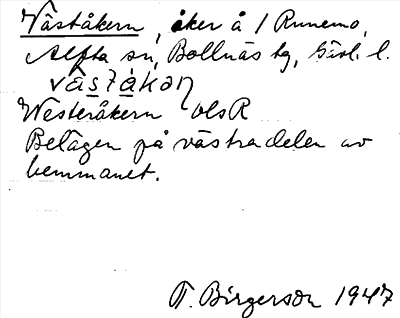 Väståkern, åker å 1 Runemo,
Alfta sn, Bollnäs tg, Gävl. l.
väståkaɳ
Westeråkern olsR
Belägen på västra delen av
hemmanet.
T. Birgerson 1947